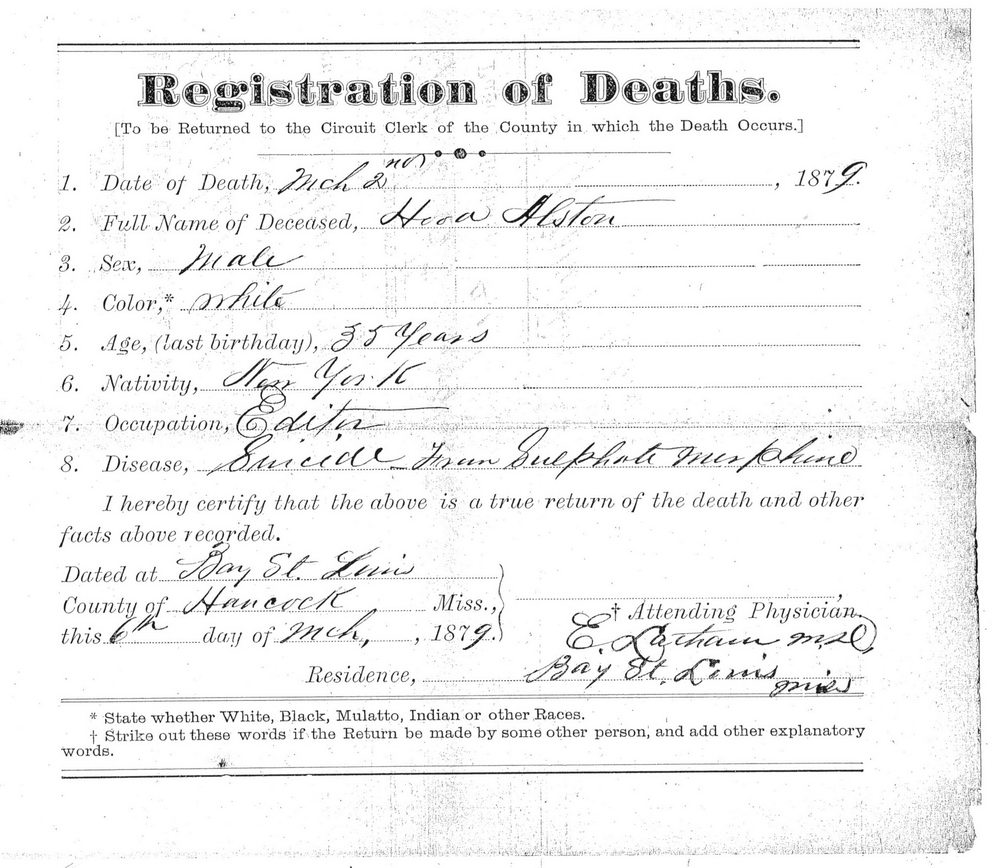 Registration of Deaths.
[To be Returned to the Circuit Clerk of the County in which the Death Occurs.]
1. Date of Death, Mch 2nd, 1879.
2. Full Name of Deceased, Alston
3. Sex, Male
4. Color,* white
5. Age, (last birthday), 35 Years
6. Nativity, New York
7. Occupation, Editor
8. Disease, Suicide From Sulphate Morphine
I hereby certify that the above is a true return of the death and other
facts above recorded.
Dated at Bay St. Louis
County of Hancock Miss.,
† Attending Physician.
this 6th day of Mch, , 1879.
E. Latham M.D.
Residence, Bay St. Louis
Miss
* State whether White, Black, Mulatto, Indian or other Races.
† Strike out these words if the Return be made by some other person, and add other explanatory
words.